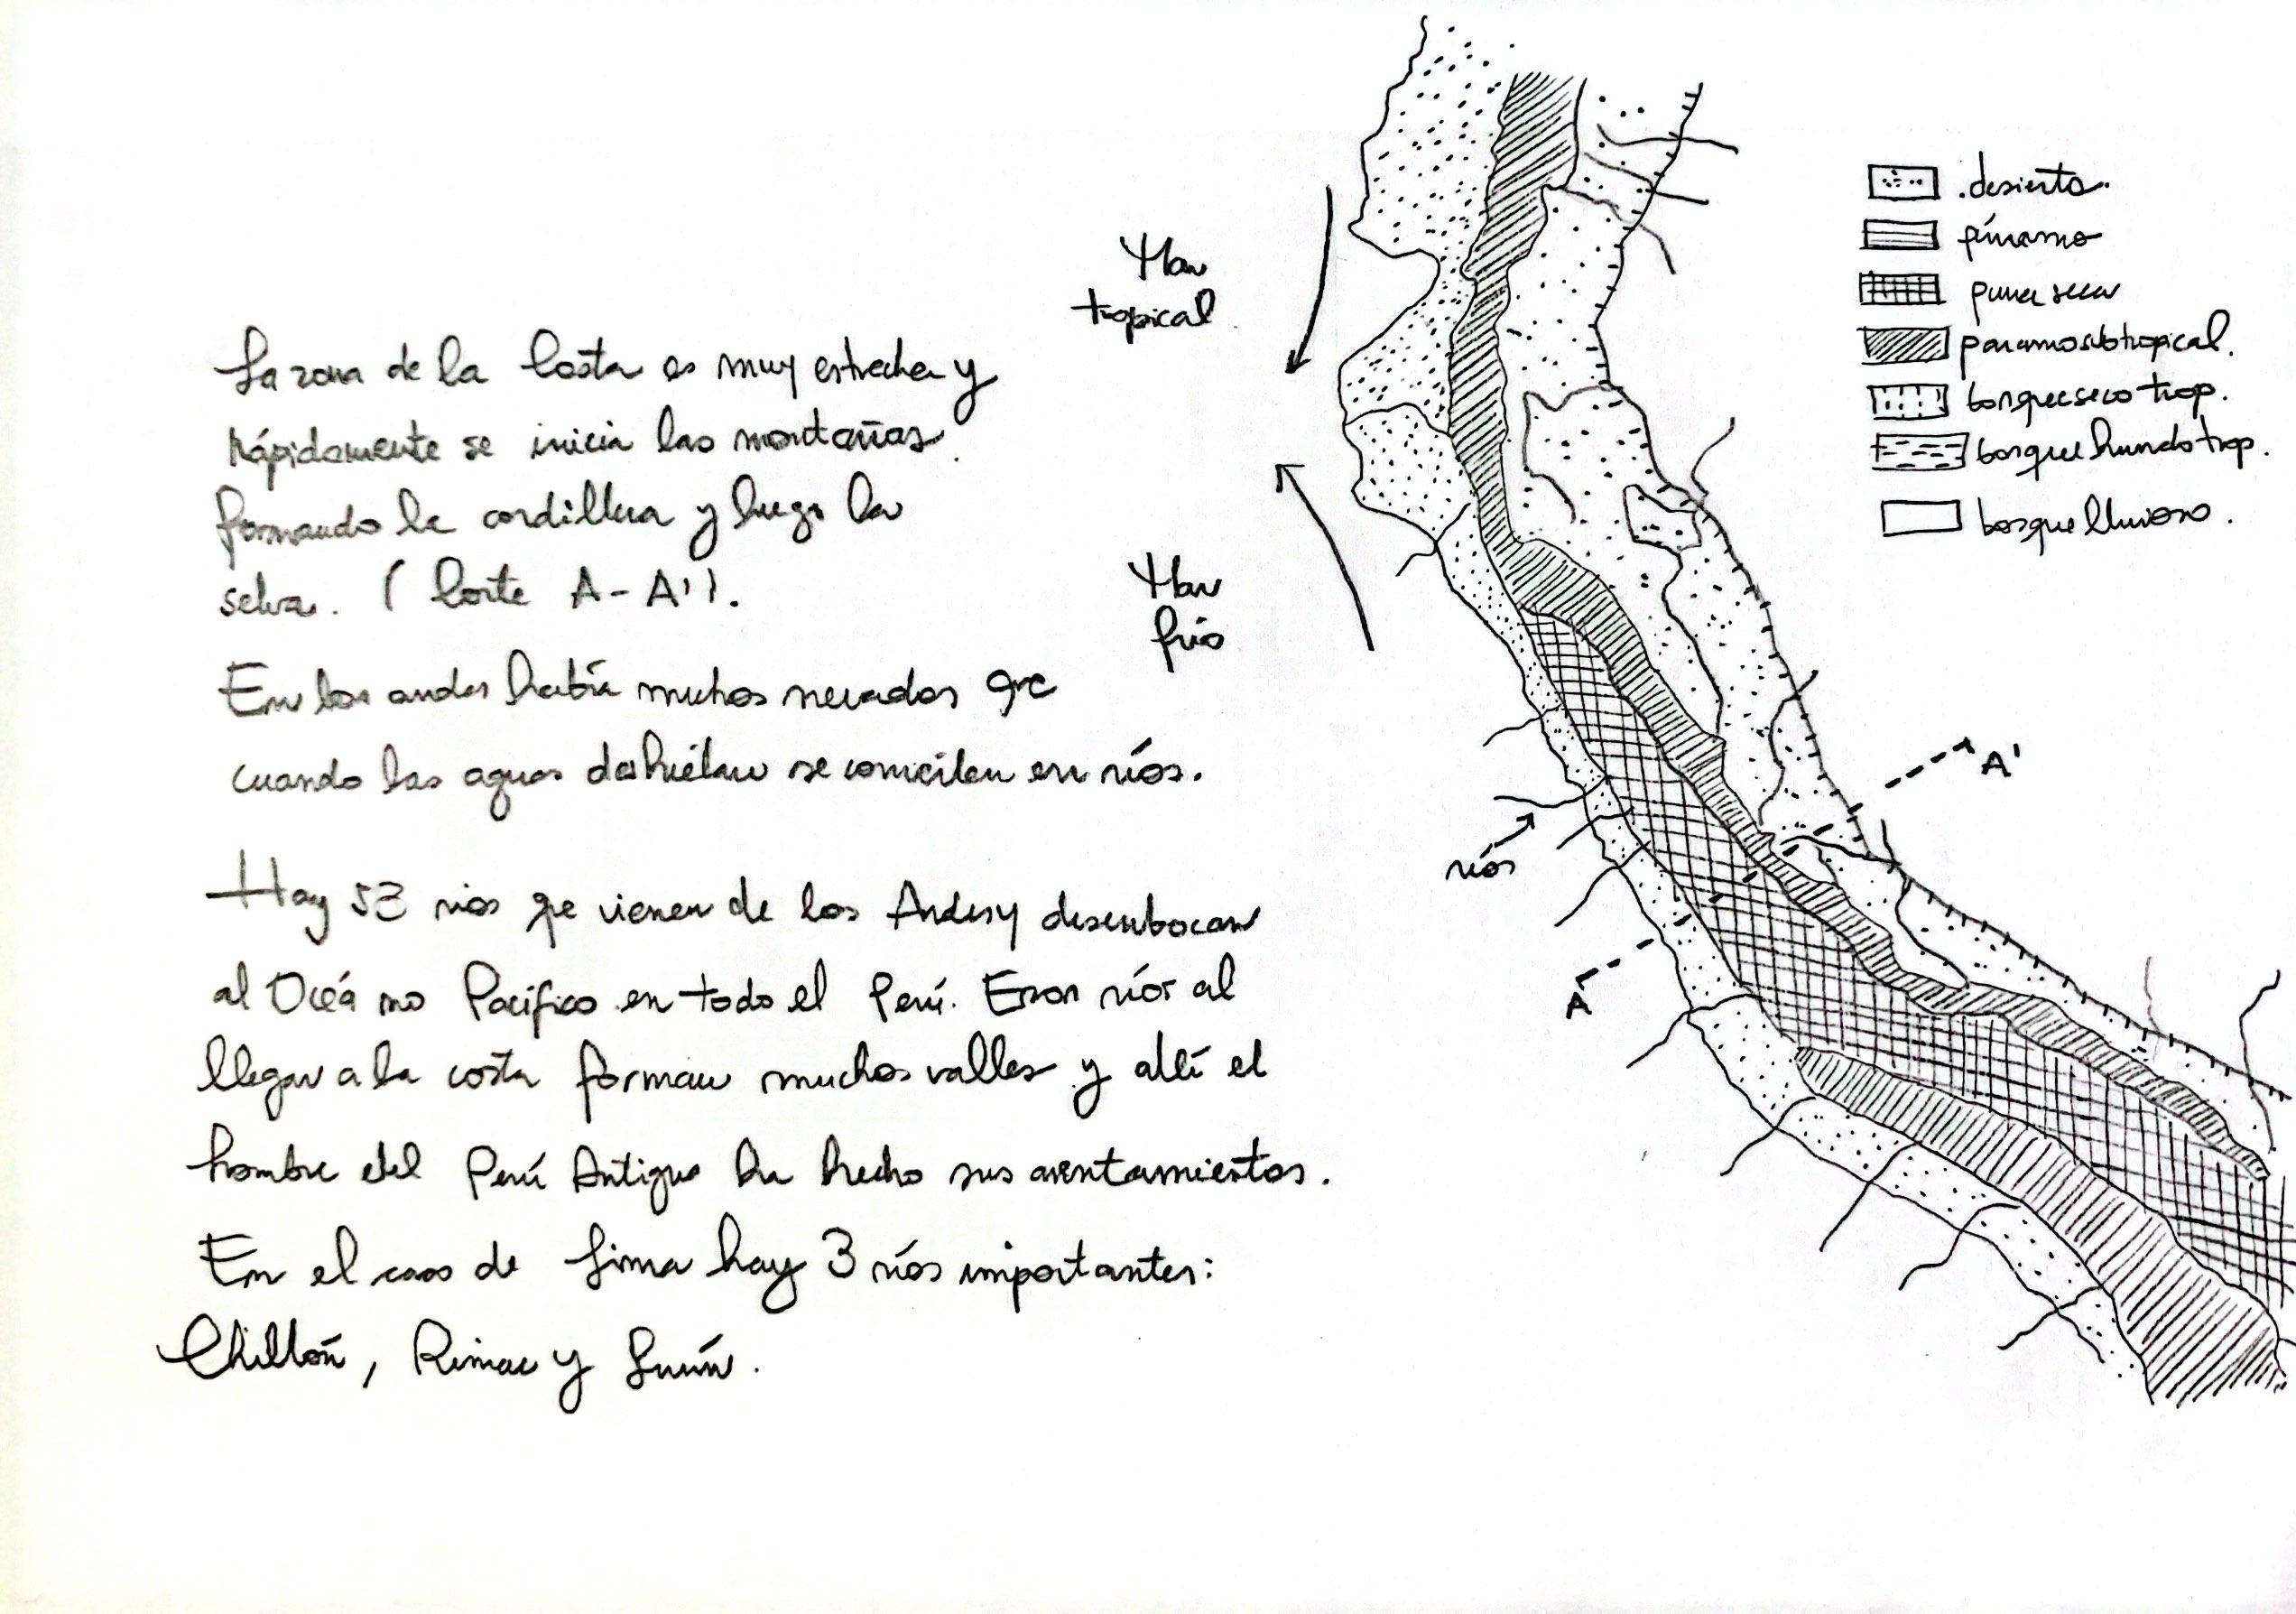 La zona de la Costa es muy estrecha y
rápidamente se inicia las montañas
formando la cordillera y luego la
selva. (Corte A-A').
En los andes había muchos nevados que
cuando las aguas deshielan se convierten en ríos.
Hay 53 ríos que vienen de los Andes y desembocan
al Océano Pacífico en todo el Perú. Esos ríos al
llegar a la costa forman muchos valles y allí el
hombre del Perú Antiguo ha hecho sus asentamientos.
En el caso de Lima hay 3 ríos importantes:
Chillón, Rimac y Lurín.
Mar
tropical
Mar
frío
ríos
A
A'
desierto
páramo
puna seca
paramo subtropical.
bosque seco trop.
bosque humdo trop.
bosque lluvioso.